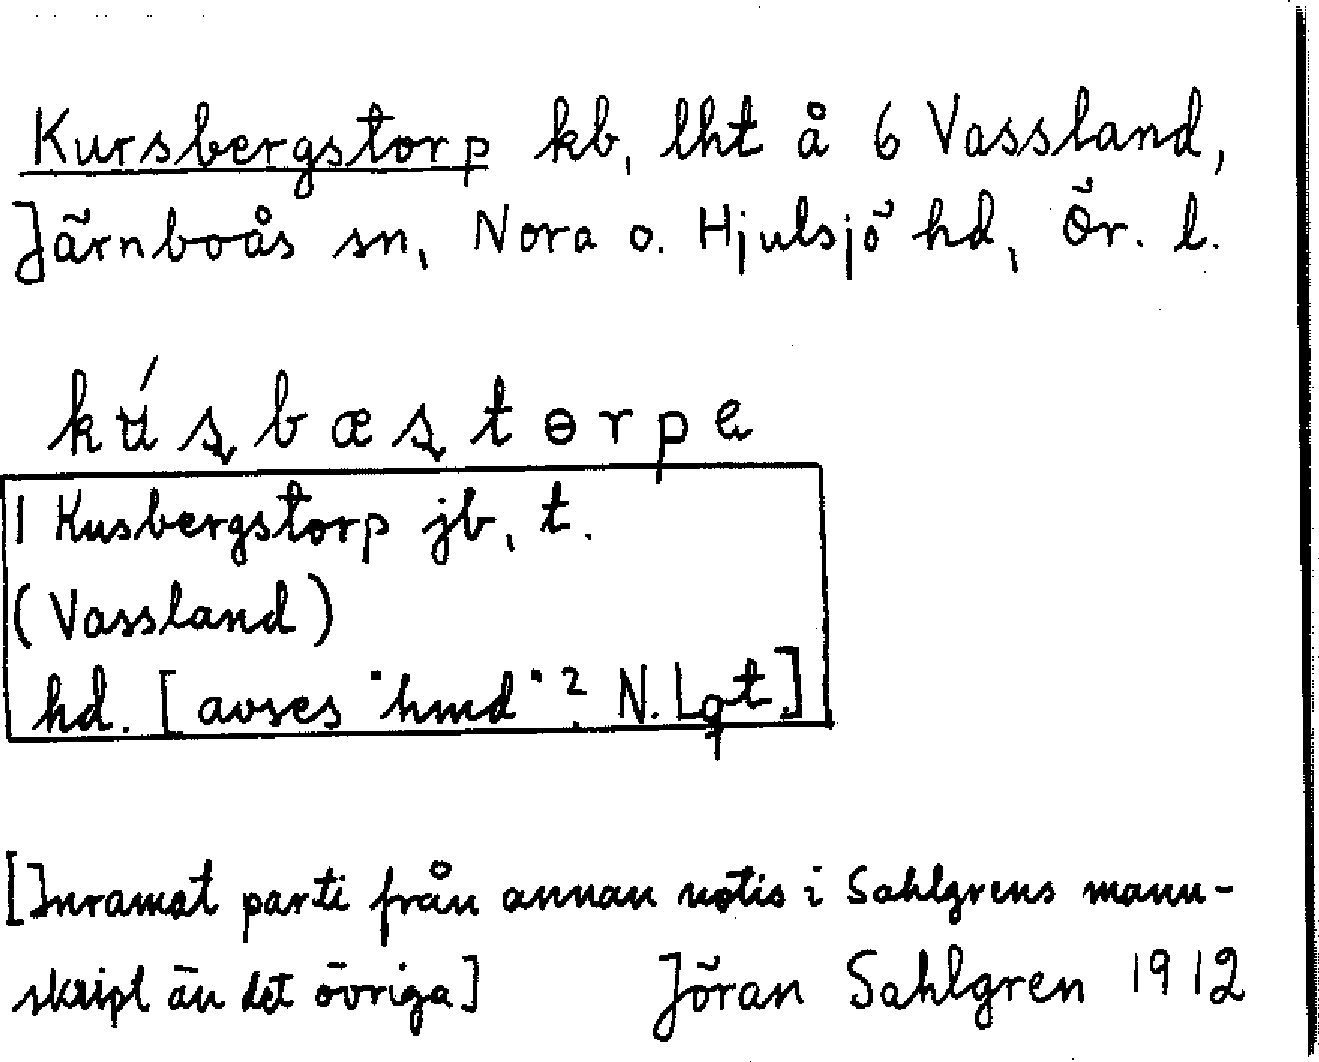 Kursbergstorp kb, lht å 6 Vassland,
Järnboås sn, Nora o. Hjulsjö hd, Ör. l.
kʉ́ʂbæʂtɵrpe
1 Kusbergstorp jb, t.
(Vassland)
hd. [avses "hmd"? N. Lgt]
[Inramat parti från annan notis i Sahlgrens manu-
skript än det övriga] Jöran Sahlgren 1912